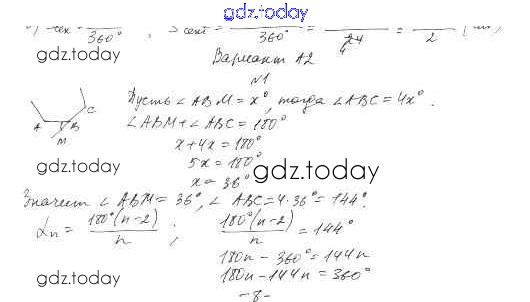 gdz.today
360° , Sсект = 360° = 24 = 2
gdz.today
Вариант А2
№1
Пусть ∠ABM = x°, тогда ∠ABC = 4x°.
C
A B
M
∠ABM + ∠ABC = 180°
x + 4x = 180°
5x = 180°
x = 36°
gdz.today
gdz.today
Значит ∠ABM = 36°, ∠ABC = 4·36° = 144°.
αn = 180°(n-2)/n ; 180°(n-2)/n = 144°
180n - 360° = 144n
gdz.today
180n - 144n = 360°
- 8 -